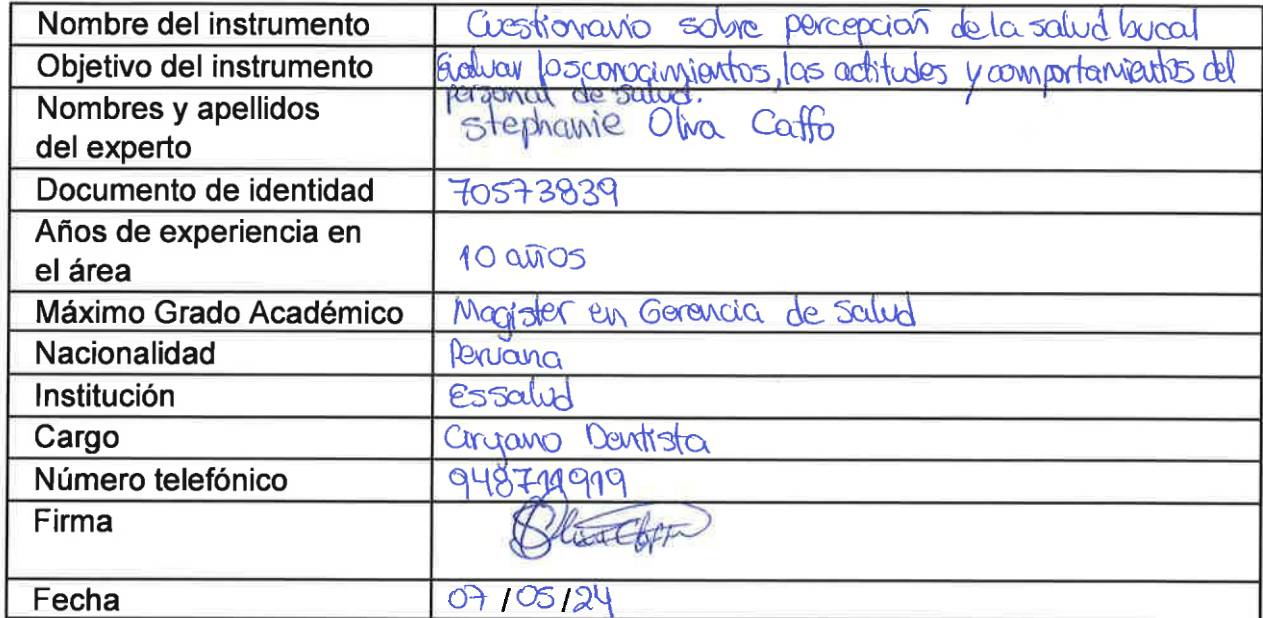 Nombre del instrumento Cuestionario sobre percepción de la salud bucal
Objetivo del instrumento Evaluar los conocimientos, las actitudes y comportamientos del
personal de salud.
Nombres y apellidos
del experto Stephanie Oliva Caffo
Documento de identidad 70573839
Años de experiencia en
el área 10 años
Máximo Grado Académico Magister en Gerencia de Salud
Nacionalidad Peruana
Institución Essalud
Cargo Cirujano Dentista
Número telefónico
Firma
Fecha 07/05/24